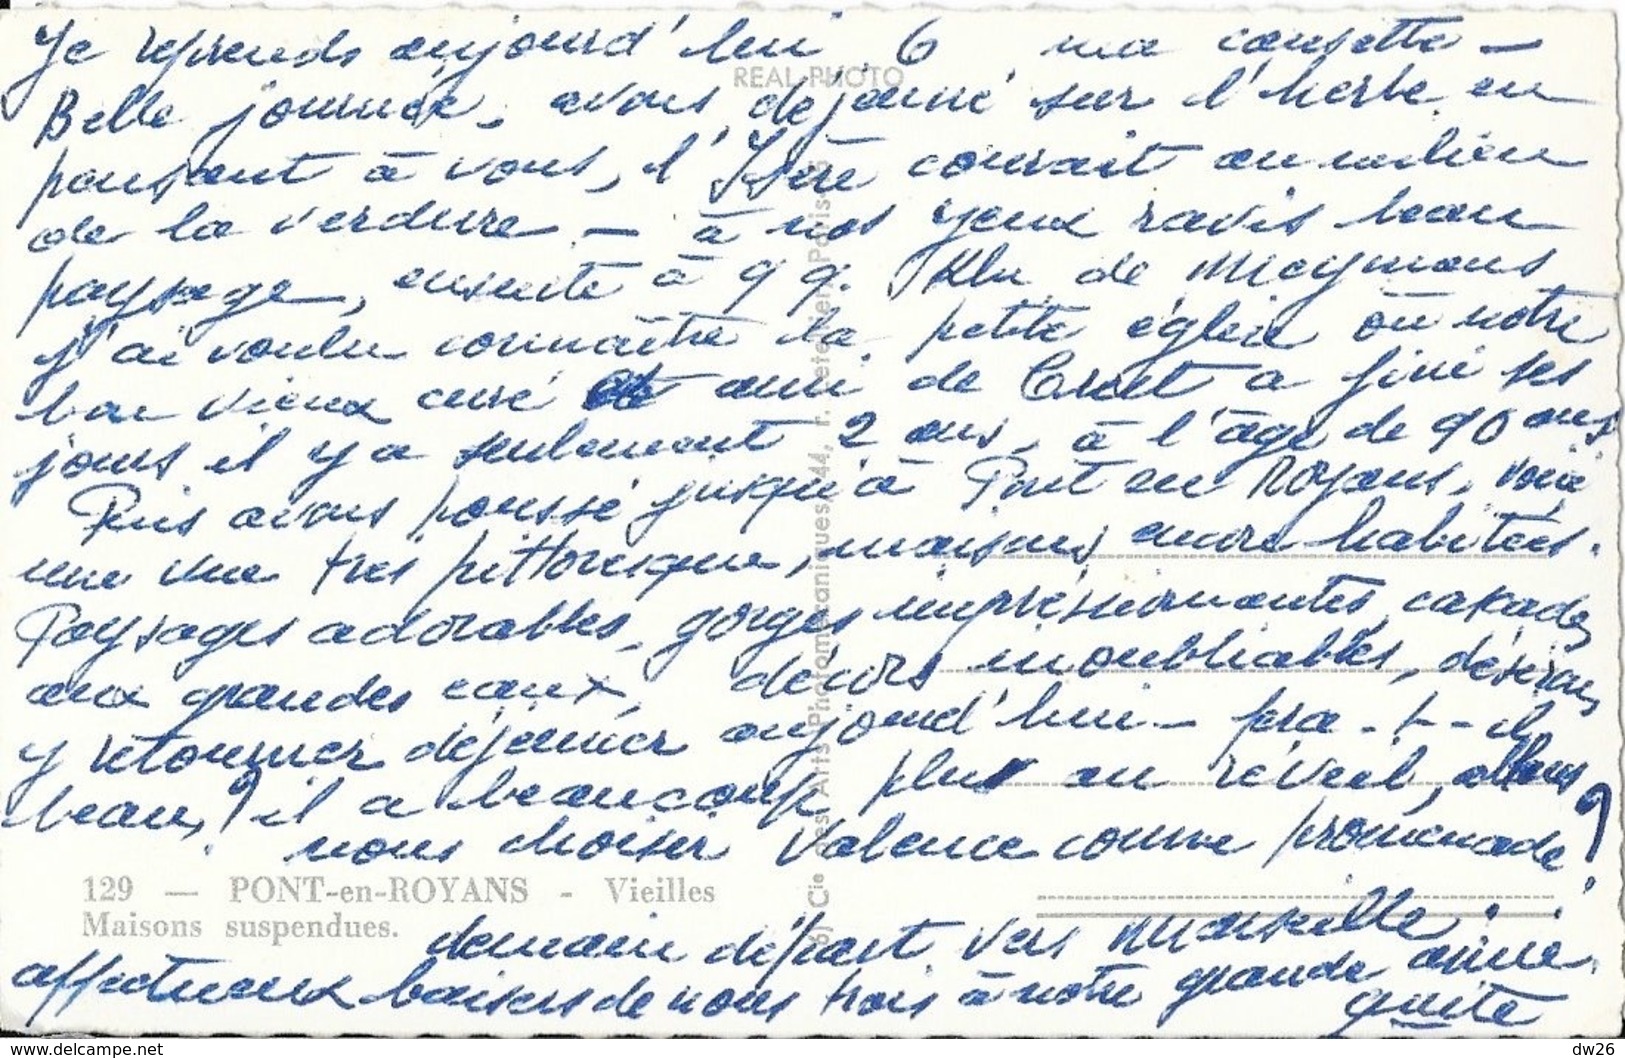 Je reprends aujourd'hui 6 ma causette —
REAL PHOTO
Belle journée, avons déjeuné sur l'herbe en
pensant à vous, l'Isère courait au milieu
de la verdure — à nos yeux ravis beau
paysage, ensuite à qq. Klm de Meymans
j'ai voulu connaître la petite église où notre
bon vieux curé ami de Crest a fini ses
jours il y a seulement 2 ans, à l'âge de 90 ans
Puis avons poussé jusqu'à Pont en Royans, voici
une vue très pittoresque, maisons encore habitées.
Paysages adorables, gorges impressionnantes, cascades
aux grandes eaux, décors inoubliables, désirons
y retourner déjeuner aujourd'hui — fera-t-il
beau? il a beaucoup plu au réveil, allons
nous choisir Valence comme promenade?
129 — PONT-en-ROYANS - Vieilles
Maisons suspendues.
demain départ vers Marseille.
affectueux baisers de nous trois à notre grande amie
guite
Cie des Arts Photomécaniques, 44, r. Letellier, Paris
dw26
www.delcampe.net